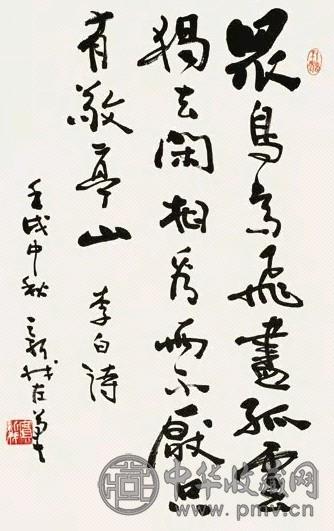 眾鳥高飛盡孤雲
獨去閑相看兩不厭只
有敬亭山 李白詩
壬戌中秋 新我左筆
中华收藏网
www.pmv.cn